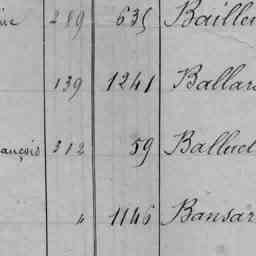 289 635 Baille
139 1241 Ballar
ançois 312 59 Balluet
" 1146 Bansar